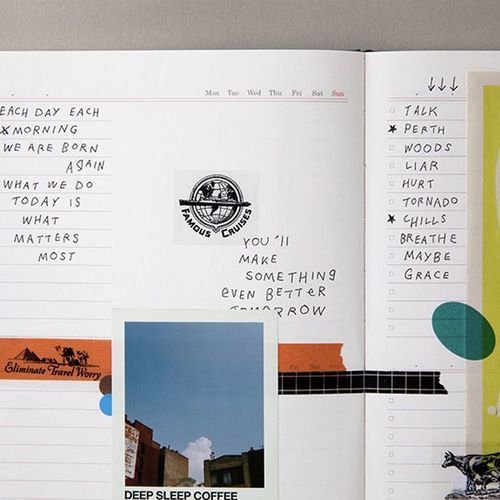 Mon Tue Wed Thu Fri Sat Sun
EACH DAY EACH
MORNING
WE ARE BORN
AGAIN
WHAT WE DO
TODAY IS
WHAT
MATTERS
MOST
FAMOUS CRUISES
YOU'll
MAKE
SOMETHING
EVEN BETTER
TOMORROW
Eliminate Travel Worry
Fri Sat
DEEP SLEEP COFFEE
TALK
PERTH
WOODS
LIAR
HURT
TORNADO
CHILLS
BREATHE
MAYBE
GRACE